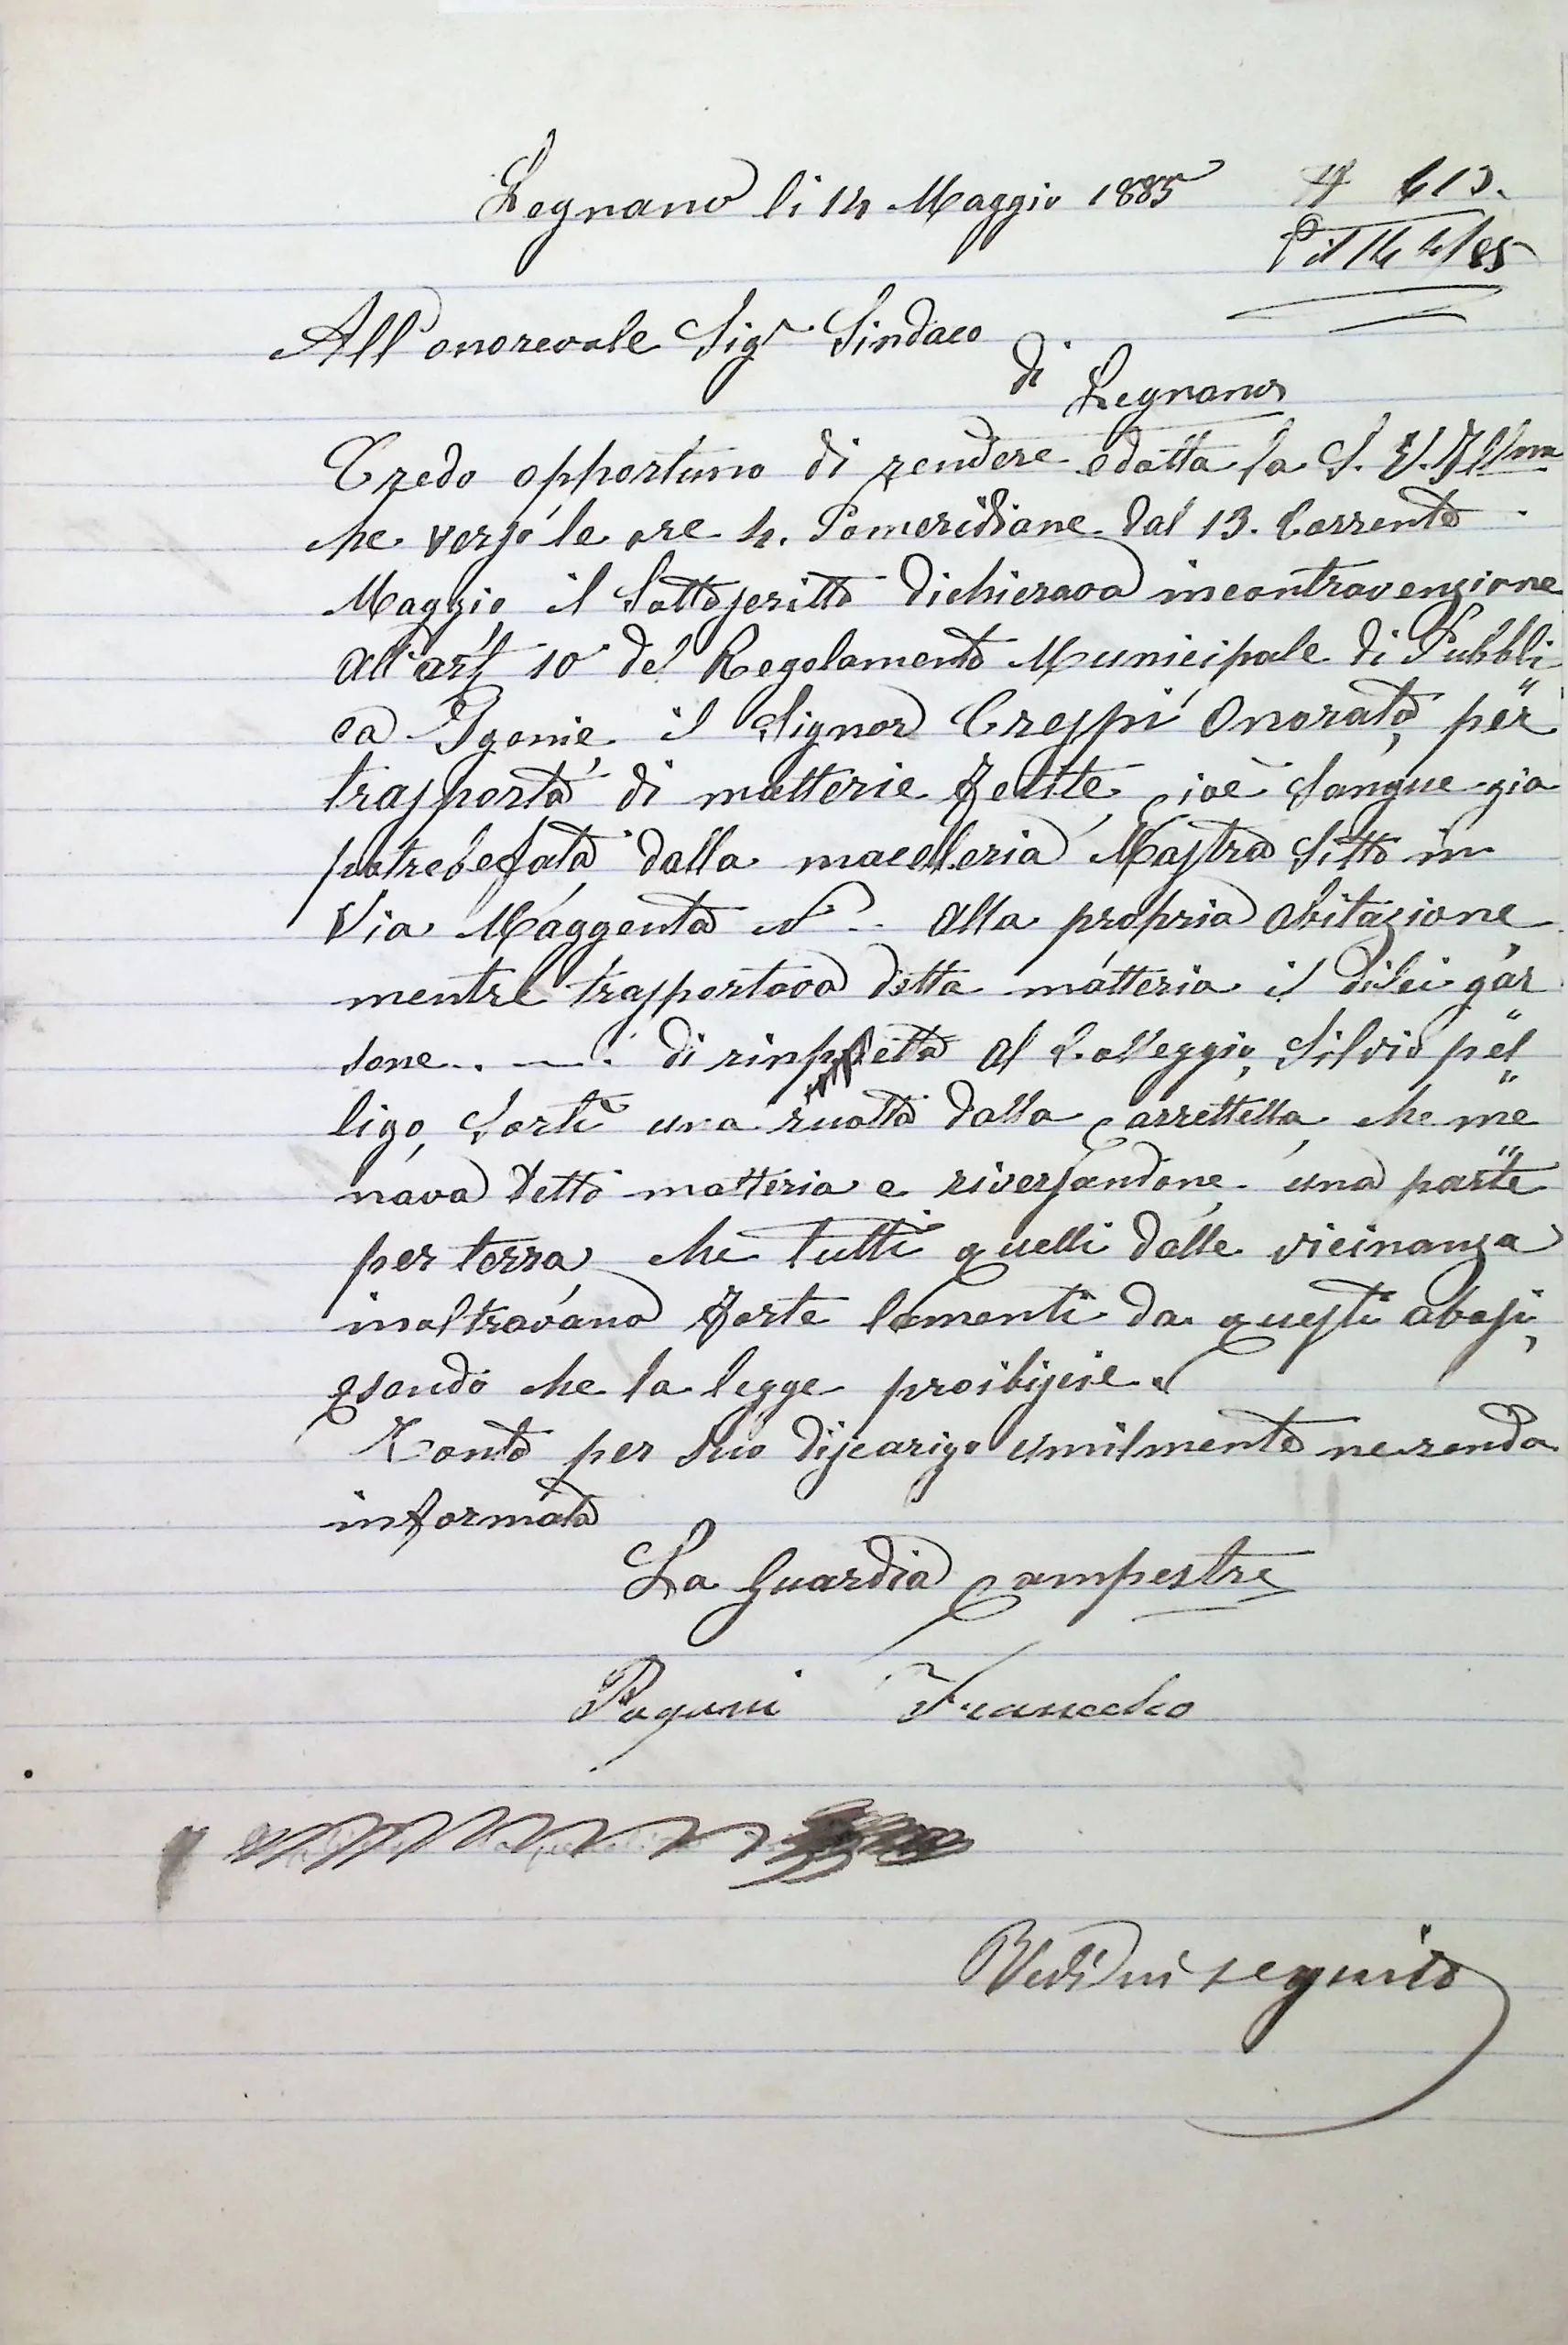 Legnano li 14 Maggio 1885
№ 613.
P il 14 5/85
All'onorevole Sigr Sindaco
di
Legnano
Credo opportuno di rendere edotta la S. V. Illma
che verso le ore 4. Pomeridiane dal 13. Corrente
Maggio il Sottoscritto dichierava incontravenzione
all'art 10 del Regolamento Municipale di Pubbli
ca Igenie il Signor Crespi Onorato, per
trasporto di matterie fettte, cioè sangue gia
putrebefato dalla macelleria Mastra Sitto in
Via Maggenta N .. alla propria abitazione
mentre trasportava detta matteria il dilei gar
sone . . — . di rinpetto al Colleggio, Silvio pel
ligo, Sorti una ruotta dalla carrettella che me
nava detto matteria e riversandone una parte
per terra che tutti quelli dalle vicinanza
inoltravano forte lamenti da questi abusi,
esendo che la legge proibiscie.
Tanto per suo discarigo umilmente ne renda
informato
La Guardia Campestre
Pagani Francesco
Vedi in seguito